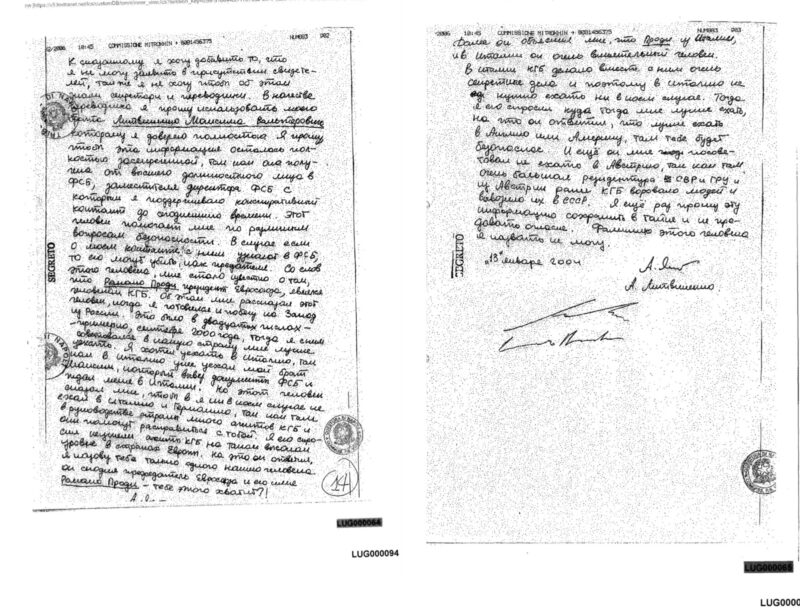 2006 10:45 COMMISSIONE MITROKHIN → 8081436375 NUM083 002
К сказанному я хочу добавить то, что
я не могу заявить в присутствии свидете-
лей, так же я не хочу чтоб об этом
знали секретари и переводчики. В качестве
переводчика я прошу использовать моего
брата Литвиненко Максима Вальтеровича
которому я доверяю полностью. Я прошу
чтоб эта информация осталась пол-
ностью засекреченной, так как она полу-
чена от высшего должностного лица в
ФСБ, заместителя директора ФСБ с
которым я поддерживаю конспиративный
контакт до сегодняшнего времени. Этот
человек помогает мне по различным
вопросам безопасности. В случае если
о моем контакте с ним узнают в ФСБ,
то его могут убить, как предателя. Со слов
этого человека, мне стало известно о том,
что Романо Проди, президент Евросоюза, является
человеком КГБ. Об этом мне рассказал этот
человек, когда я готовился к побегу на Запад
из России. Это было в двадцатых числах
примерно, сентября 2000 года, тогда я с ним
советовался в какую страну мне лучше
уехать. Я хотел уехать в Италию, так
как в Италию уже уехал мой брат
Максим, который вывез документы ФСБ и
ждал меня в Италии. Но этот человек
сказал мне, чтоб я ни в коем случае не
ехал в Италию и Германию, так как там
в руководстве страны много агентов КГБ и
они помогут расправиться с тобой. Я его спро-
сил неужели агенты КГБ на таком высоком
уровне в странах Европы. На это он ответил,
я назову тебе только одного нашего человека
он сегодня председатель Евросоюза и его имя
Романо Проди - тебе этого хватит?!
SEGRETO
14
LUG000064
LUG000094
2006 10:45 COMMISSIONE MITROKHIN → 8081436375 NUM083 003
Далее он объяснил мне, что Проди из Италии,
и в Италии он очень влиятельный человек.
В Италии КГБ делало вместе с ним очень
секретные дела и поэтому в Италию не
нужно ехать ни в коем случае. Тогда
я его спросил куда тогда мне лучше ехать,
на что он ответил, что лучше ехать
в Англию или Америку, там тебе будет
безопаснее. И ещё он мне посове-
товал не ехать в Австрию, так как там
очень большая резидентура СВР и ГРУ и
из Австрии ранее КГБ воровало людей и
вывозило их в СССР. Я ещё раз прошу эту
информацию сохранить в тайне и не пре-
давать огласке. Фамилию этого человека
я назвать не могу.
"13" января 2004
А. Литвиненко
SEGRETO
LUG000065
LUG0000